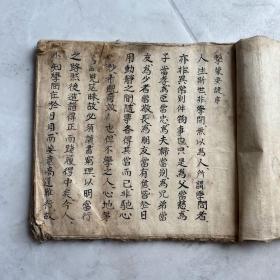 擊蒙要訣序
人生斯世非學問無以為人所謂學問者
亦非異常別件物事也只是為父當慈為
子當孝為臣當忠為夫婦當別為兄弟當
友為少者當敬長為朋友當有信皆於日
用動靜之間隨事各得其當而已非馳心
妙希覬奇效者也但不學之人心地茅
識見茫昧故必須讀書窮理以明當行
之路然後造詣得正而踐履得中矣今人
不知學問在於日用而妄意高遠難行故